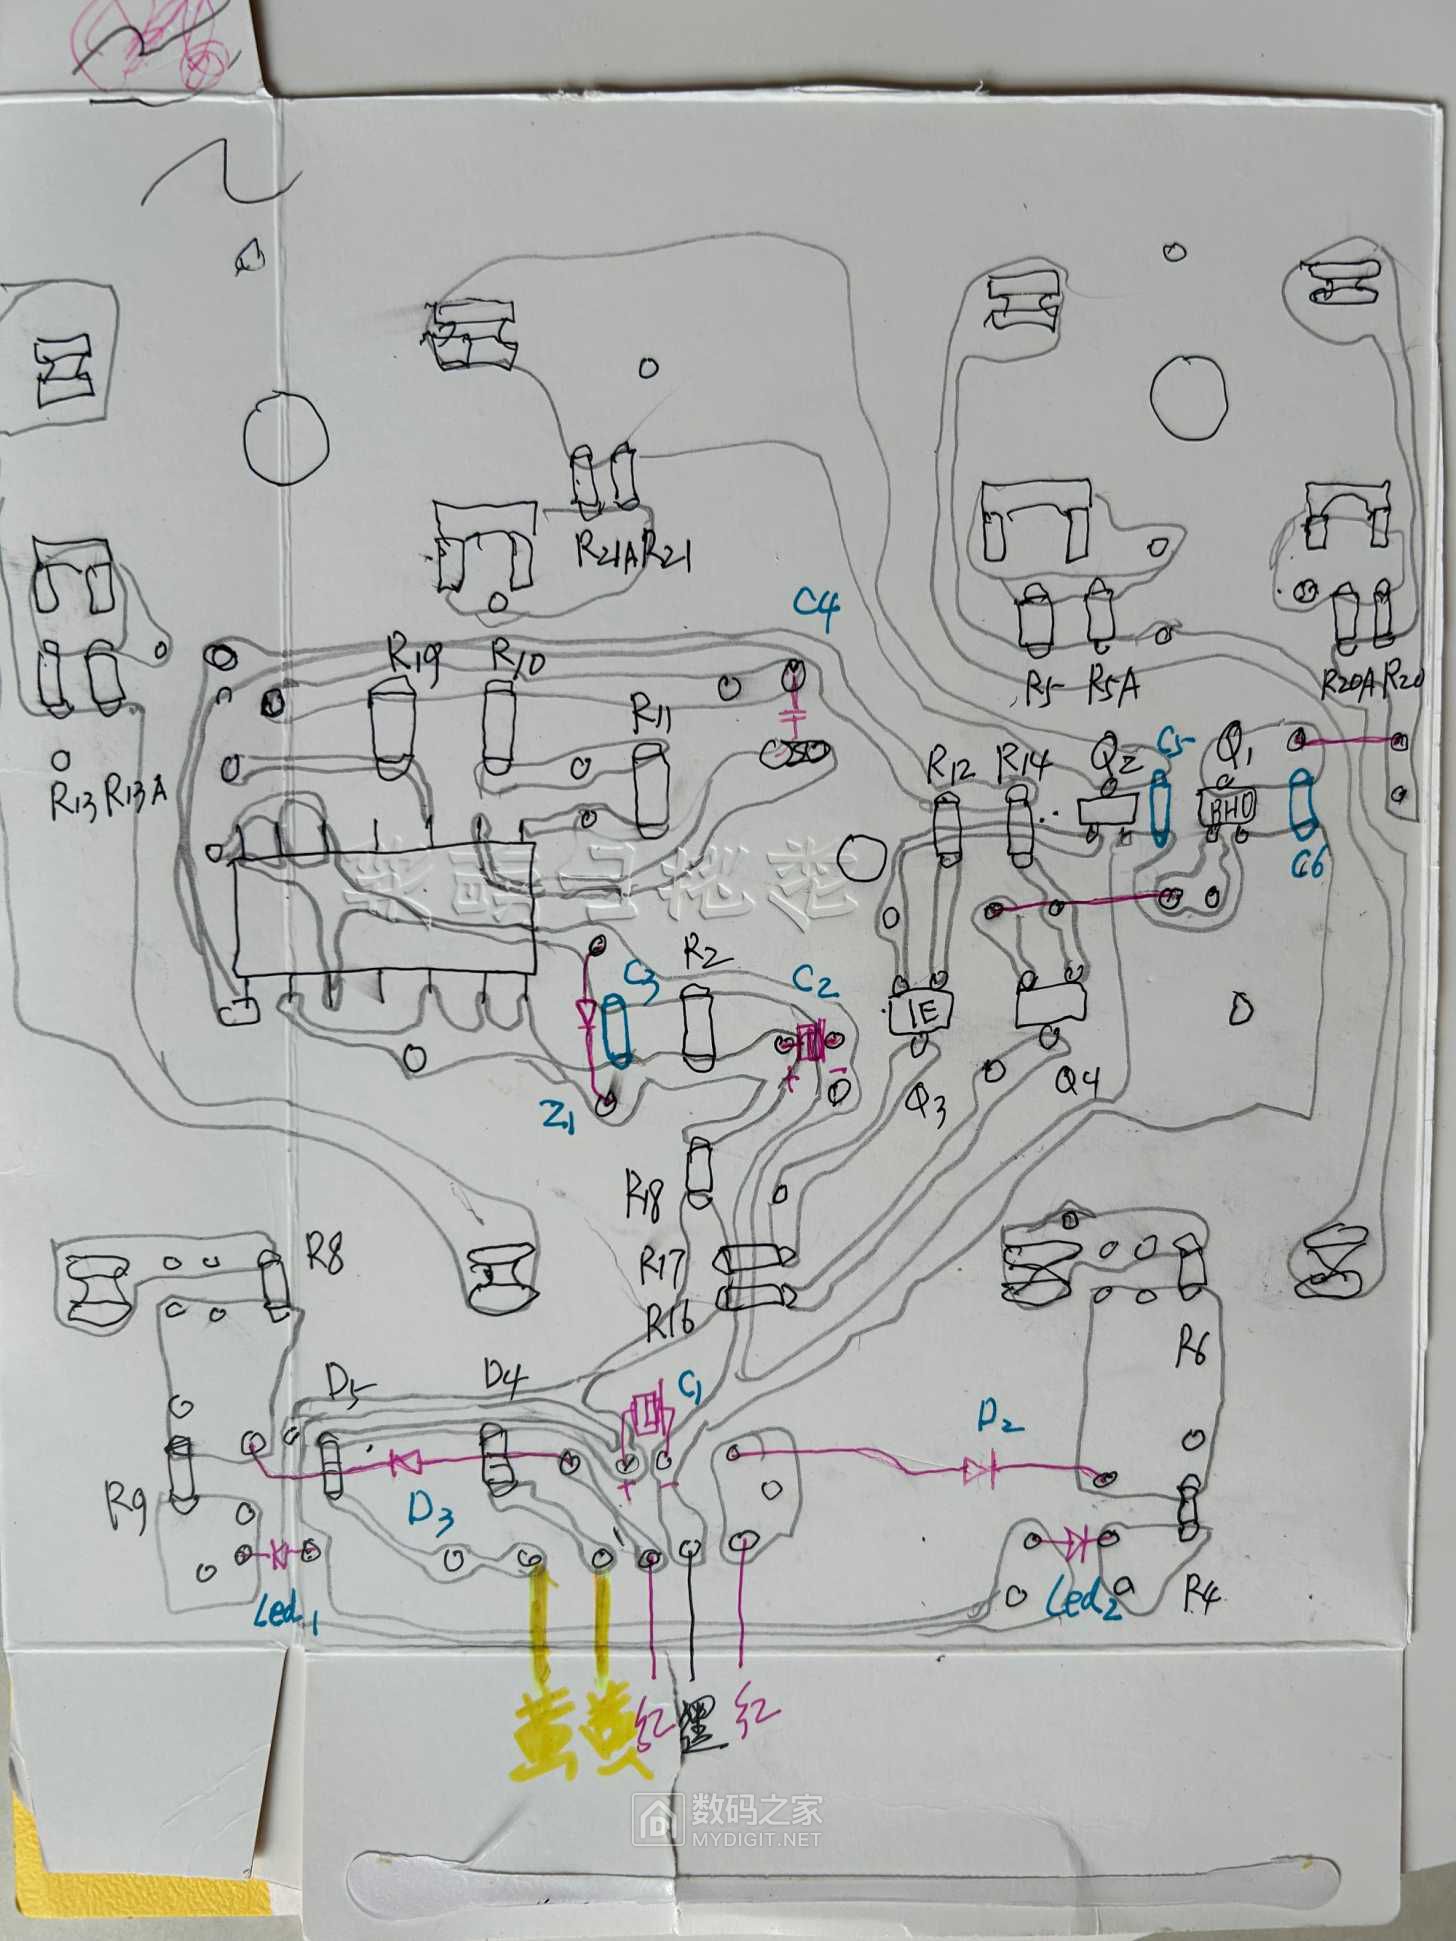 R21A R21
C4
R19 R10
R11
R5 R5A
R20A R20
R13 R13A
R12 R14 Q2 C5 Q1
BHO
C6
C3 R2 C2
1E
+ -
Z1
Q3
Q4
R18
R8
R17
R16
R6
D5 D4 C1
D2
R9
D3
+ -
Led1
Led2
R4
黄 黄 红 黑 红
数码之家
MYDIGIT.NET